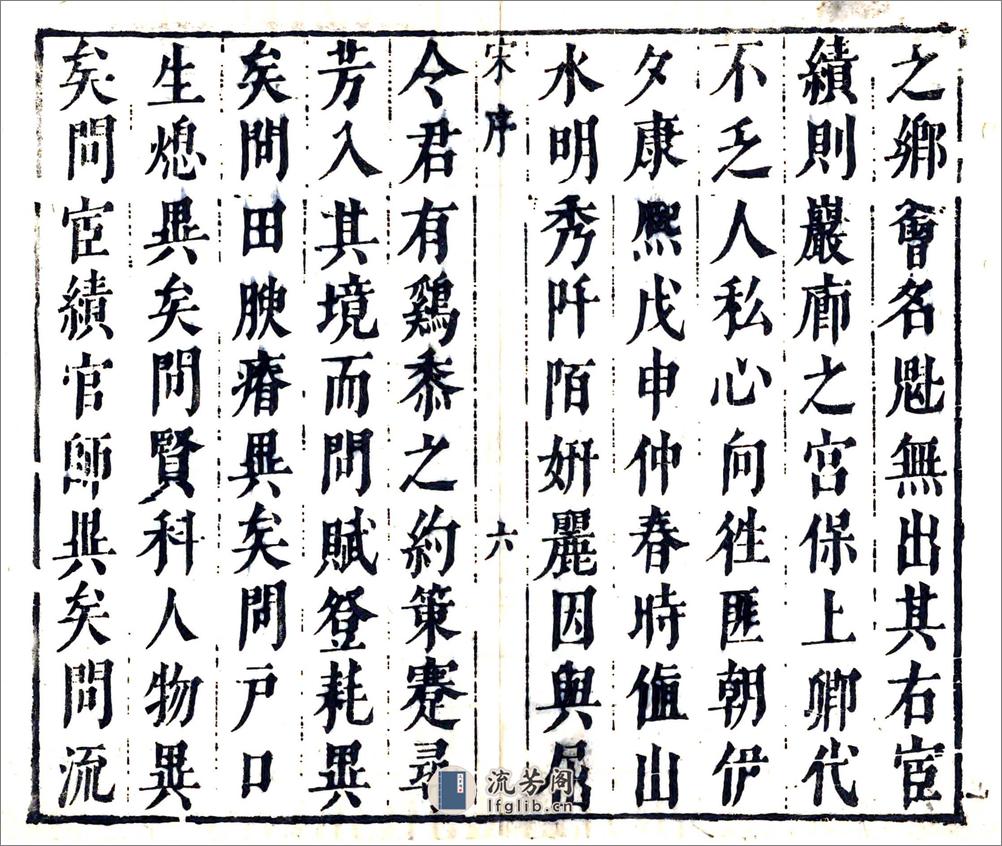 之鄉會名魁無出其右宦
績則巖廊之宫保上卿代
不乏人私心向徃匪朝伊
夕康熈戊申仲春時值山
水明秀阡陌妍麗因與邑
宋序
六
令君有鷄黍之約策蹇尋
芳入其境而問賦登耗異
矣問田腴瘠異矣問户口
生熄異矣問賢科人物異
矣問宦績官師異矣問流
流芳阁
lfglib.cn